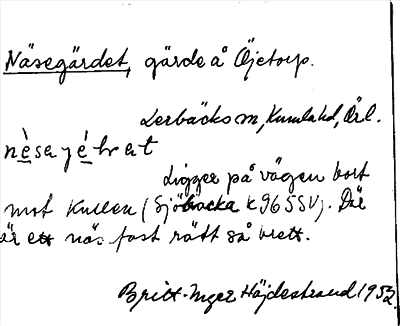 Näsegärdet, gärde å Öjetorp.
Lerbäcks sn, Kumla hd, Örl.
nèsejé̱tret
Ligger på vägen bort
mot Kullen (Sjöbacka K965SV). Där
är ett näs fast rätt så brett.
Britt-Inger Höjdestrand 1952